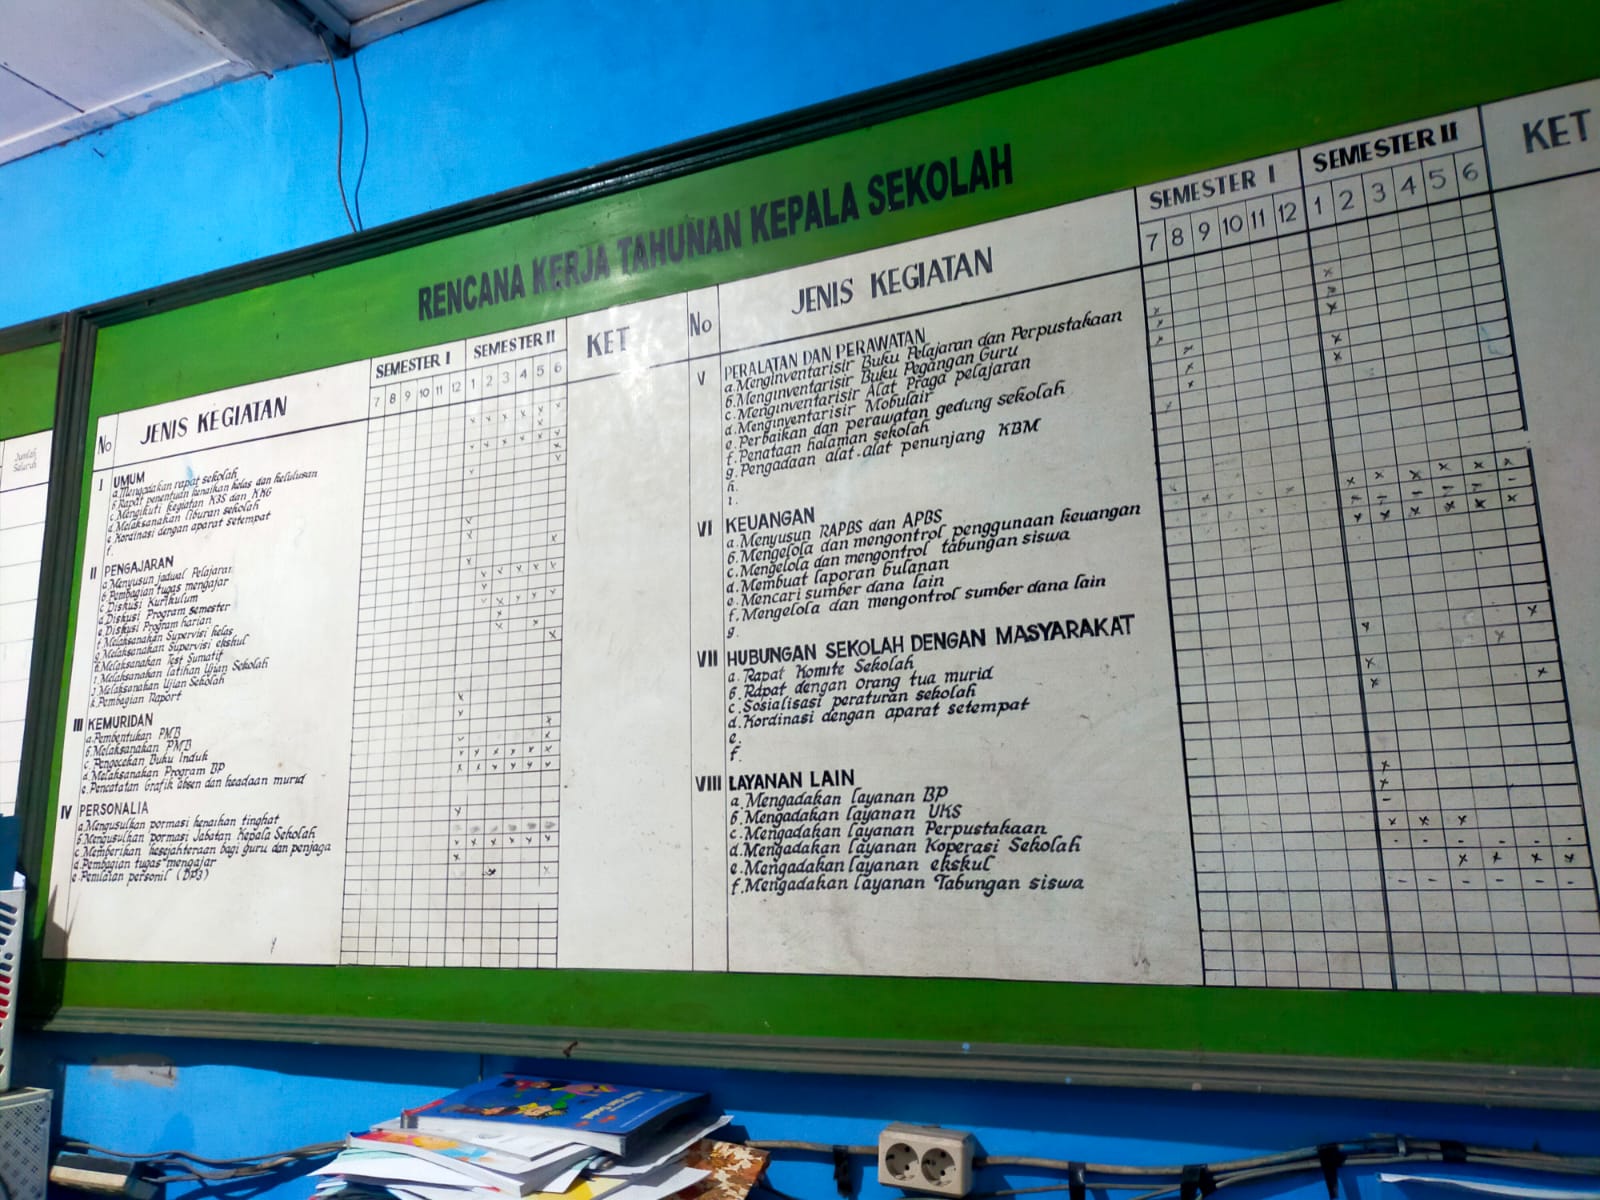 RENCANA KERJA TAHUNAN KEPALA SEKOLAH
Jumlah
Seluruh
No JENIS KEGIATAN SEMESTER I SEMESTER II KET
7 8 9 10 11 12 1 2 3 4 5 6
I UMUM
a. Mengadakan rapat sekolah
b. Rapat penentuan kenaikan kelas dan kelulusan
c. Mengikuti kegiatan K3S dan KKG
d. Melaksanakan liburan sekolah
e. Kordinasi dengan aparat setempat
f.
II PENGAJARAN
a. Menyusun jadwal Pelajaran
b. Pembagian tugas mengajar
c. Diskusi Kurikulum
d. Diskusi Program semester
e. Diskusi Program harian
f. Melaksanakan Supervisi kelas
g. Melaksanakan Supervisi ekskul
h. Melaksanakan Test Sumatif
i. Melaksanakan latihan Ujian Sekolah
j. Melaksanakan Ujian Sekolah
k. Pembagian Raport
III KEMURIDAN
a. Pembentukan PMB
b. Melaksanakan PMB
c. Pengecekan Buku Induk
d. Melaksanakan Program BP
e. Pencatatan Grafik absen dan keadaan murid
IV PERSONALIA
a. Mengusulkan pormasi kenaikan tingkat
b. Mengusulkan pormasi Jabatan Kepala Sekolah
c. Memberikan kesejahteraan bagi guru dan penjaga
d. Pembagian tugas mengajar
e. Penilaian personil (DP3)
No JENIS KEGIATAN SEMESTER I SEMESTER II KET
7 8 9 10 11 12 1 2 3 4 5 6
V PERALATAN DAN PERAWATAN
a. Menginventarisir Buku Pelajaran dan Perpustakaan
b. Menginventarisir Buku Pegangan Guru
c. Menginventarisir Alat Praga pelajaran
d. Menginventarisir Mobulair
e. Perbaikan dan perawatan gedung sekolah
f. Penataan halaman sekolah
g. Pengadaan alat-alat penunjang KBM
h.
i.
VI KEUANGAN
a. Menyusun RAPBS dan APBS
b. Mengelola dan mengontrol penggunaan keuangan
c. Mengelola dan mengontrol tabungan siswa
d. Membuat laporan bulanan
e. Mencari sumber dana lain
f. Mengelola dan mengontrol sumber dana lain
g.
VII HUBUNGAN SEKOLAH DENGAN MASYARAKAT
a. Rapat Komite Sekolah
b. Rapat dengan orang tua murid
c. Sosialisasi peraturan sekolah
d. Kordinasi dengan aparat setempat
e.
f.
VIII LAYANAN LAIN
a. Mengadakan layanan BP
b. Mengadakan layanan UKS
c. Mengadakan layanan Perpustakaan
d. Mengadakan layanan Koperasi Sekolah
e. Mengadakan layanan ekskul
f. Mengadakan layanan Tabungan siswa